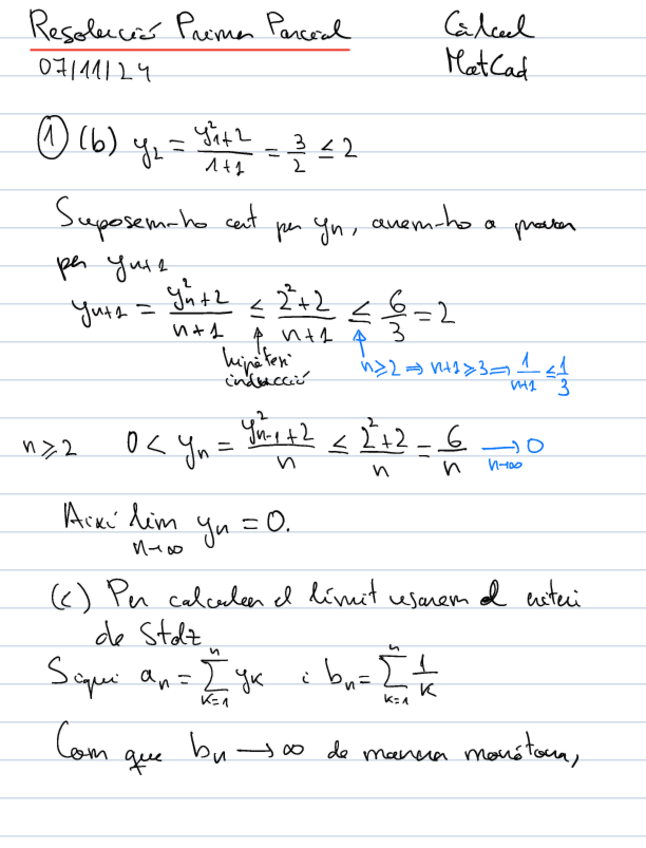 Resolució Primer Parcial Càlcul
07/11/24 MatCad
① (b) y₂ = (y₁² + 2)/(1+1) = 3/2 ≤ 2
Suposem-ho cert per yₙ, anem-ho a provar
per yₙ₊₁
yₙ₊₁ = (yₙ² + 2)/(n+1) ≤ (2² + 2)/(n+1) ≤ 6/3 = 2
hipòtesi
inducció
n≥2 ⇒ n+1≥3 ⇒ 1/(n+1) ≤ 1/3
n≥2 0 < yₙ = (yₙ₋₁² + 2)/n ≤ (2² + 2)/n = 6/n ⟶ 0
n→∞
Així lim yₙ = 0.
n→∞
(c) Per calcular el límit usarem el criteri
de Stolz
Sigui aₙ = ∑ₖ₌₁ⁿ yₖ i bₙ = ∑ₖ₌₁ⁿ 1/k
Com que bₙ ⟶ ∞ de manera monòtona,